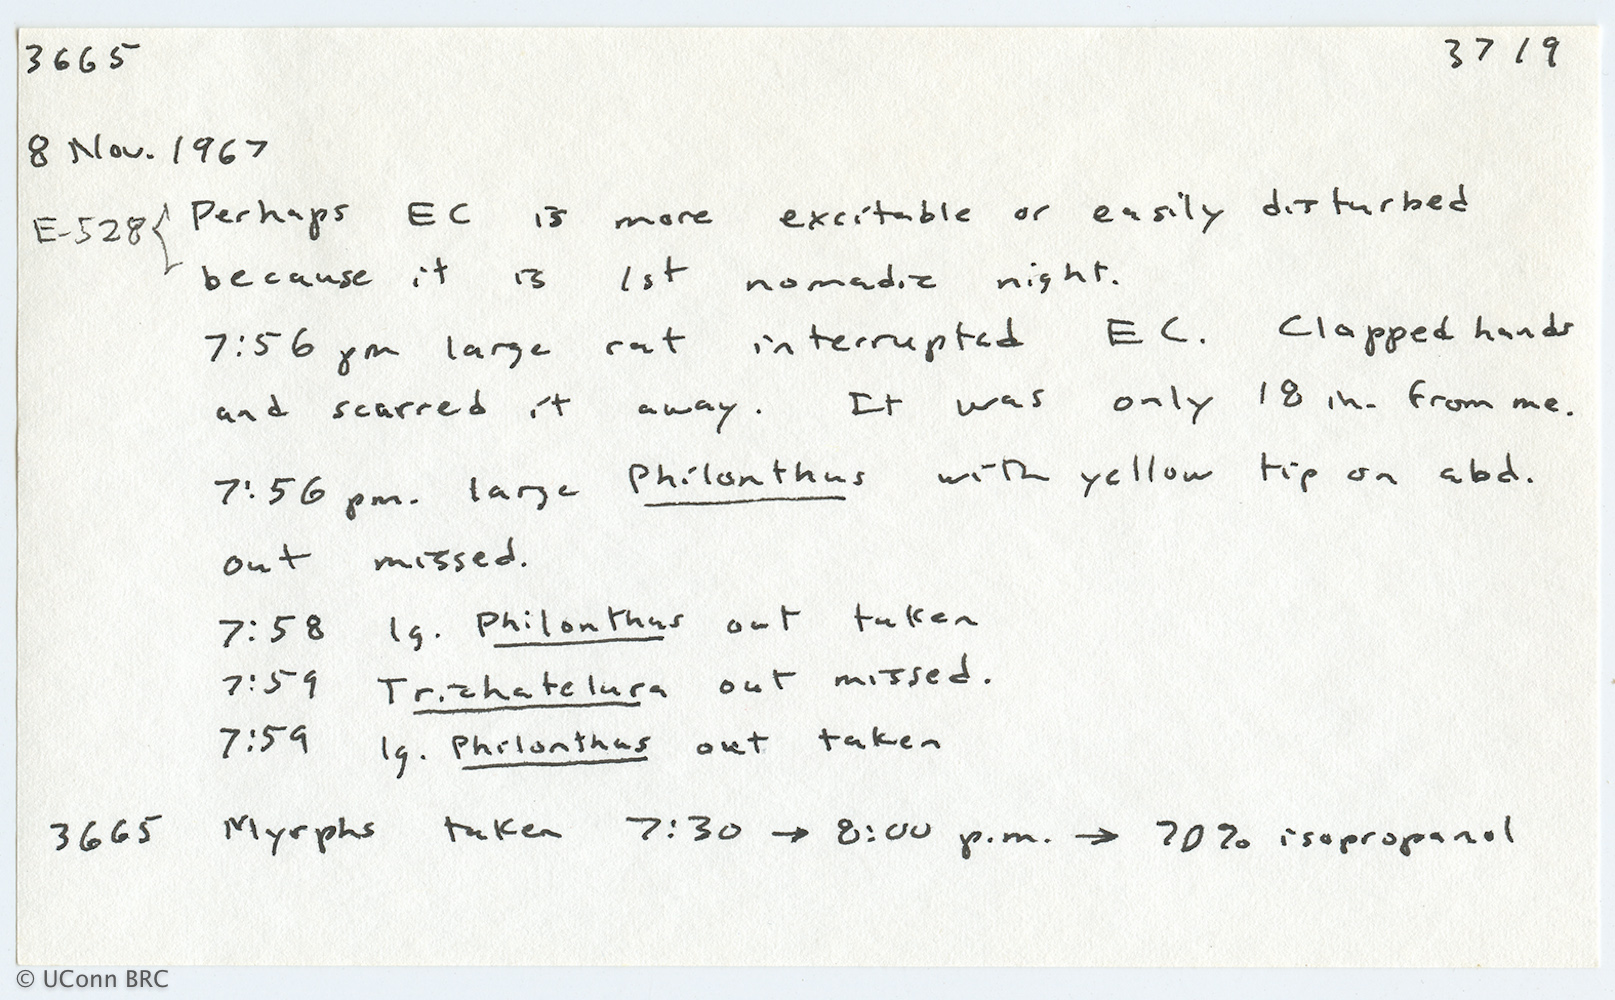 3665 3719
8 Nov. 1967
E-528 { Perhaps EC is more excitable or easily disturbed
because it is 1st nomadic night.
7:56 pm large rat interrupted EC. Clapped hands
and scarred it away. It was only 18 in. from me.
7:56 pm. large Philonthus with yellow tip on abd.
out missed.
7:58 lg. Philonthus out taken
7:59 Trichatelura out missed.
7:59 lg. Philonthus out taken
3665 Myrphs taken 7:30 → 8:00 p.m. → 70% isopropanol
© UConn BRC